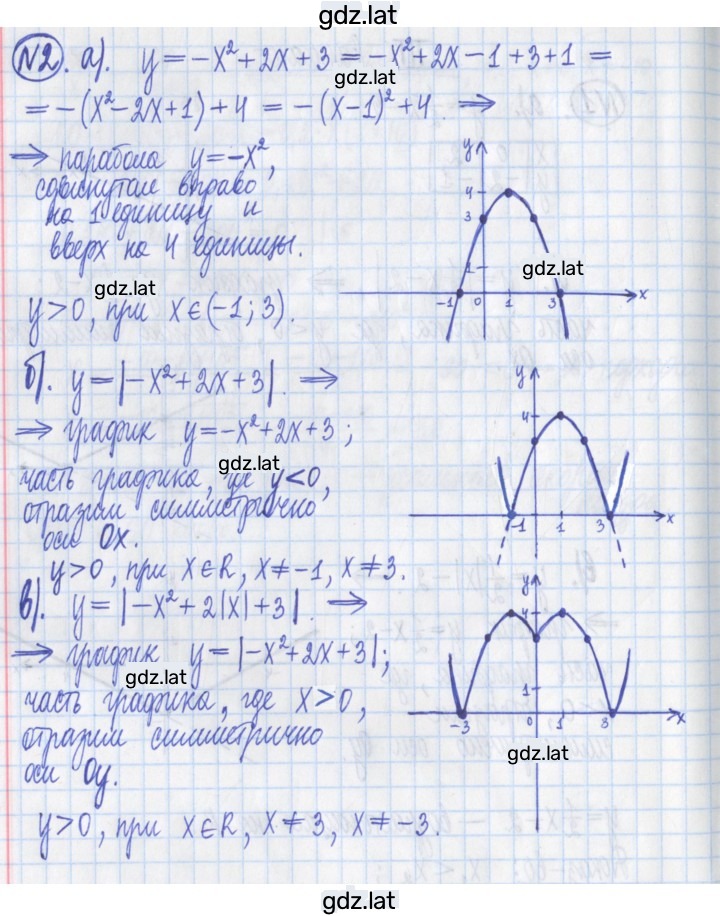 gdz.lat
N2. а). y = -x² + 2x + 3 = -x² + 2x - 1 + 3 + 1 =
gdz.lat
= -(x² - 2x + 1) + 4 = -(x - 1)² + 4. ⟹
⟹ парабола y = -x²,
сдвинутая вправо
на 1 единицу и
вверх на 4 единицы.
y
4
3
1
-1 0 1 3 x
gdz.lat
gdz.lat
y > 0, при x ∈ (-1; 3).
б). y = |-x² + 2x + 3|. ⟹
⟹ график y = -x² + 2x + 3;
gdz.lat
часть графика, где y < 0,
отразим симметрично
оси Ox.
y
4
-1 1 3 x
y > 0, при x ∈ R, x ≠ -1, x ≠ 3.
в). y = |-x² + 2|x| + 3|. ⟹
⟹ график y = |-x² + 2x + 3|;
gdz.lat
часть графика, где x > 0,
отразим симметрично
оси Oy.
y
4
1
-3 0 1 3 x
gdz.lat
y > 0, при x ∈ R, x ≠ 3, x ≠ -3.
gdz.lat